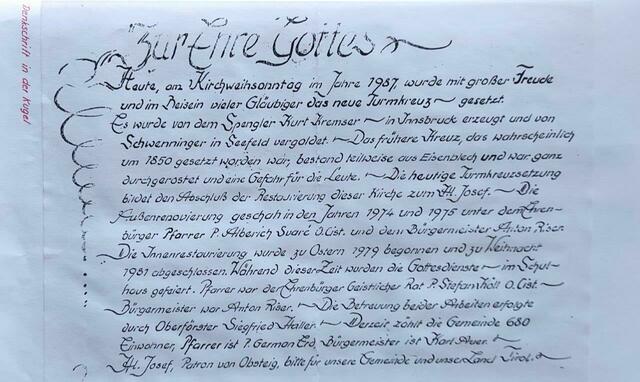 Denkschrift in der Kugel
Zur Ehre Gottes
Heute, am Kirchweihsonntag im Jahre 1987, wurde mit großer Freude
und im Beisein vieler Gläubiger das neue Turmkreuz ~ gesetzt.
Es wurde von dem Spengler Kurt Kremser ~ in Innsbruck erzeugt und von
Schwenninger in Seefeld vergoldet. ~ Das frühere Kreuz, das wahrscheinlich
um 1850 gesetzt worden war, bestand teilweise aus Eisenblech und war ganz
durchgerostet und eine Gefahr für die Leute. ~ Die heutige Turmkreuzsetzung
bildet den Abschluß der Restaurierung dieser Kirche zum Hl. Josef. ~ Die
Außenrenovierung geschah in den Jahren 1974 und 1975 unter dem Ehren-
bürger Pfarrer P. Alberich Svaré O.Cist. und dem Bürgermeister Anton Riser.
Die Innenrestaurierung wurde zu Ostern 1979 begonnen und zu Weihnacht
1981 abgeschlossen. Während dieser Zeit wurden die Gottesdienste ~ im Schul-
haus gefeiert. Pfarrer war der Ehrenbürger Geistlicher Rat P. Stefan Köll O.Cist. ~
Bürgermeister war Anton Riser. ~ Die Betreuung beider Arbeiten erfolgte
durch Oberförster Siegfried Haller. ~ Derzeit zählt die Gemeinde 680
Einwohner, Pfarrer ist P. German Erd, Bürgermeister ist Karl Auer. ~
Hl. Josef, Patron von Obsteig, bitte für unsere Gemeinde und unser Land Tirol. ~